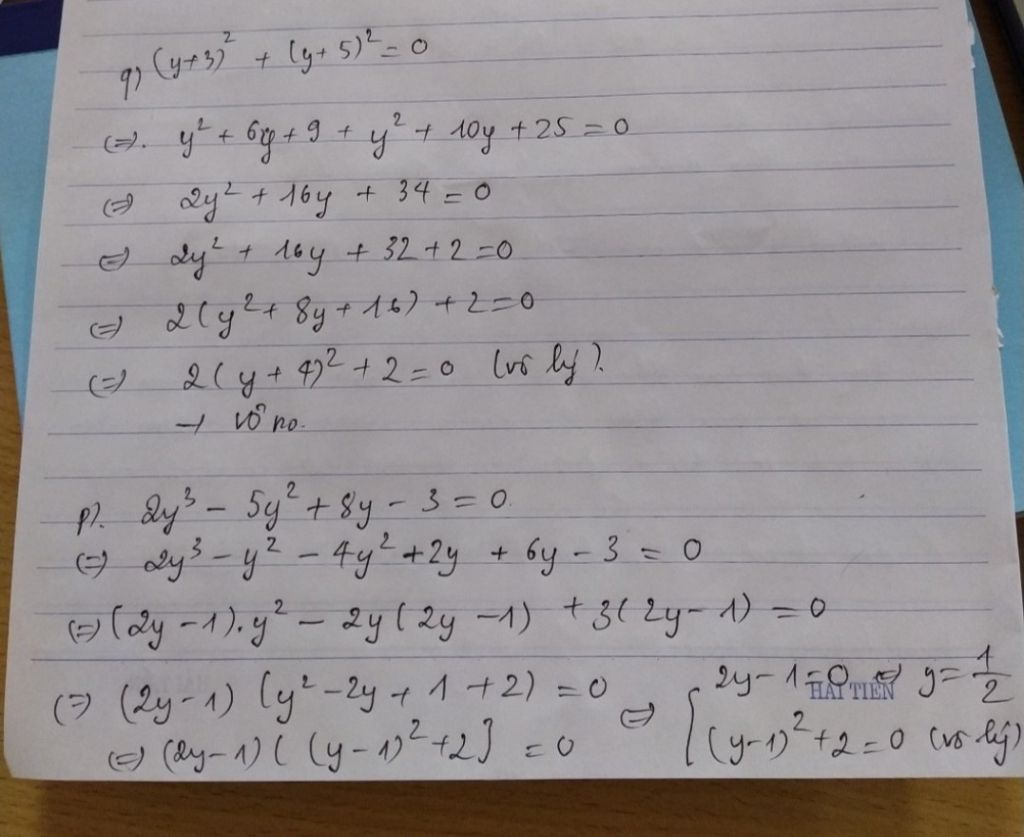 q) (y+3)² + (y+5)² = 0
(=). y² + 6y + 9 + y² + 10y + 25 = 0
(=) 2y² + 16y + 34 = 0
(=) 2y² + 16y + 32 + 2 = 0
(=) 2(y² + 8y + 16) + 2 = 0
(=) 2(y + 4)² + 2 = 0 (vô lý).
→ vô no.
p). 2y³ - 5y² + 8y - 3 = 0.
(=) 2y³ - y² - 4y² + 2y + 6y - 3 = 0
(=) (2y - 1).y² - 2y(2y - 1) + 3(2y - 1) = 0
(=) (2y - 1) (y² - 2y + 1 + 2) = 0
(=) (2y - 1) ( (y - 1)² + 2] = 0
(=) [ 2y - 1 = 0 (=) y = 1/2
(y - 1)² + 2 = 0 (vô lý)
HẢI TIẾN